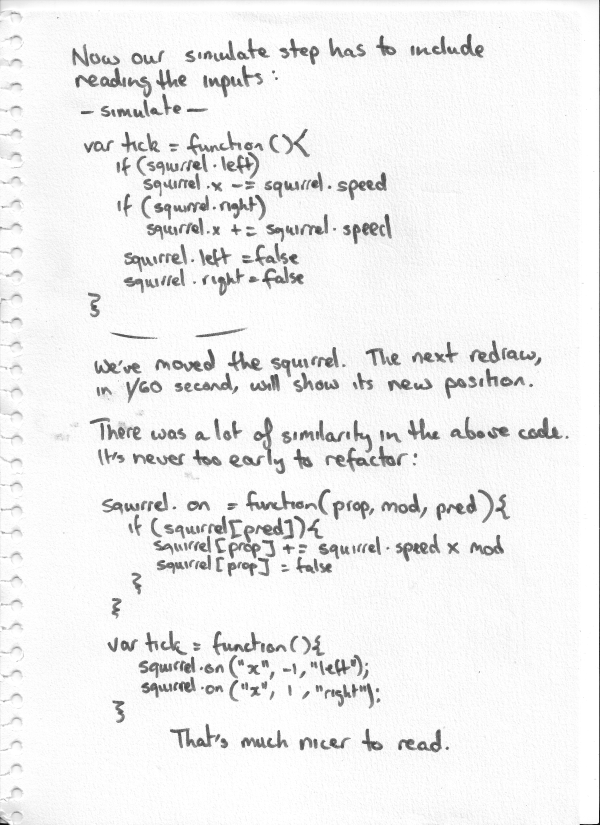 Now our simulate step has to include
reading the inputs:
- simulate -
var tick = function(){
if (squirrel.left)
squirrel.x -= squirrel.speed
if (squirrel.right)
squirrel.x += squirrel.speed
squirrel.left = false
squirrel.right = false
}
We've moved the squirrel. The next redraw,
in 1/60 second, will show its new position.
There was a lot of similarity in the above code.
It's never too early to refactor:
squirrel.on = function(prop, mod, pred){
if (squirrel[pred]){
squirrel[prop] += squirrel.speed x mod
squirrel[prop] = false
}
}
var tick = function(){
squirrel.on("x", -1, "left");
squirrel.on("x", 1, "right");
}
That's much nicer to read.